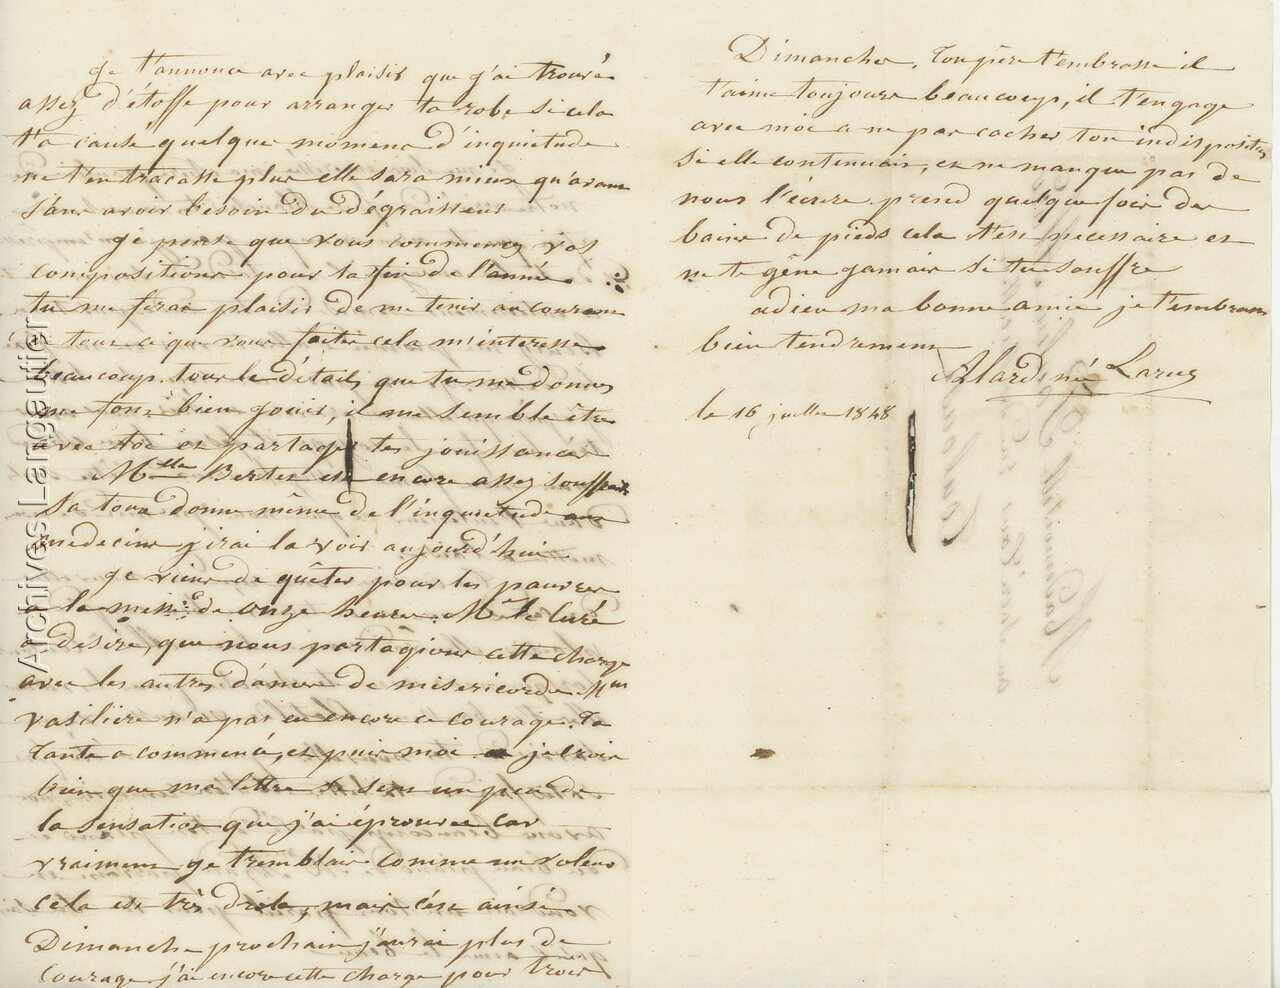 Je t'annonce avec plaisir que j'ai trouvé
assez d'étoffe pour arranger ta robe si cela
t'a causé quelque momens d'inquietude
ne t'en tracasse plus elle sera mieux qu'avant
sans avoir besoin du dégraisseur
je pense que vous commencez vos
compositions pour la fin de l'année.
tu me ferai plaisir de me tenir au courant
de tous ce que vous faites cela m'interesse
beaucoup. tour le détails que tu me donnes
me font bien jouir, il me semble être
avec toi et partager tes jouissances
Melle Berter est encore assez souffrante
sa toux donne même de l'inquietude au
medecins j'irai la voir aujourd'hui
je viens de quêter pour les pauvres
a la messe de onze heures Mr le Curé
a desiré, que nous partagions cette charge
avec les autres dames de misericorde Mme
vasiliere n'a pas eu encore ce courage. Ta
Tante a commencé, et puis moi je crois
bien que ma lettre se sens un peu de
la sensation que j'ai éprouvée car
vraiment je tremblais comme un voleur
cela est très drôle, mais c'est ainsi
Dimanche prochain j'aurai plus de
courage j'ai encore cette charge pour trois
Dimanches. Ton père t'embrasse il
t'aime toujours beaucoup, il t'engage
avec moi a ne pas cacher ton indisposition
si elle continuais, et ne manque pas de
nous l'écrire prend quelque fois des
bains de pieds cela t'est necessaire et
ne te gêne jamais si tu souffre
adieu ma bonne amie je t'embrasse
bien tendrement
Alard né Larue
le 16 juillet 1848
Archives Langautier